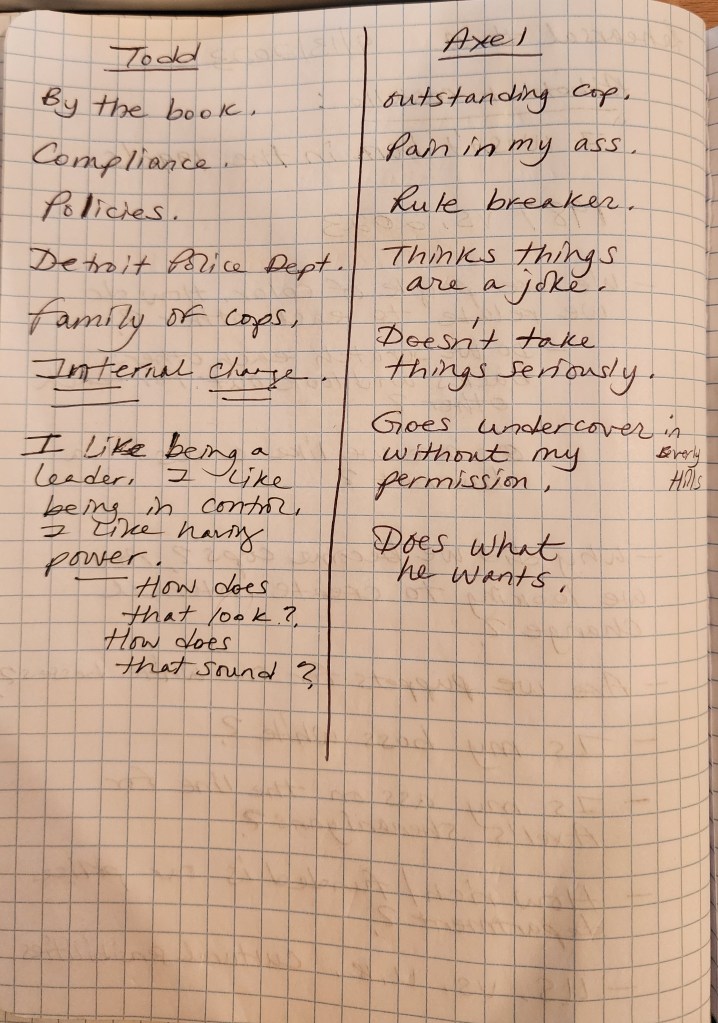 Todd
By the book.
Compliance.
Policies.
Detroit Police Dept.
family of cops.
Internal change.
I like being a
leader. I like
being in control.
I like having
power.
How does
that look?
How does
that sound?
Axel
outstanding cop.
Pain in my ass.
Rule breaker.
Thinks things
are a joke.
Doesn't take
things seriously.
Goes undercover in
without my Beverly
permission. Hills
Does what
he wants.